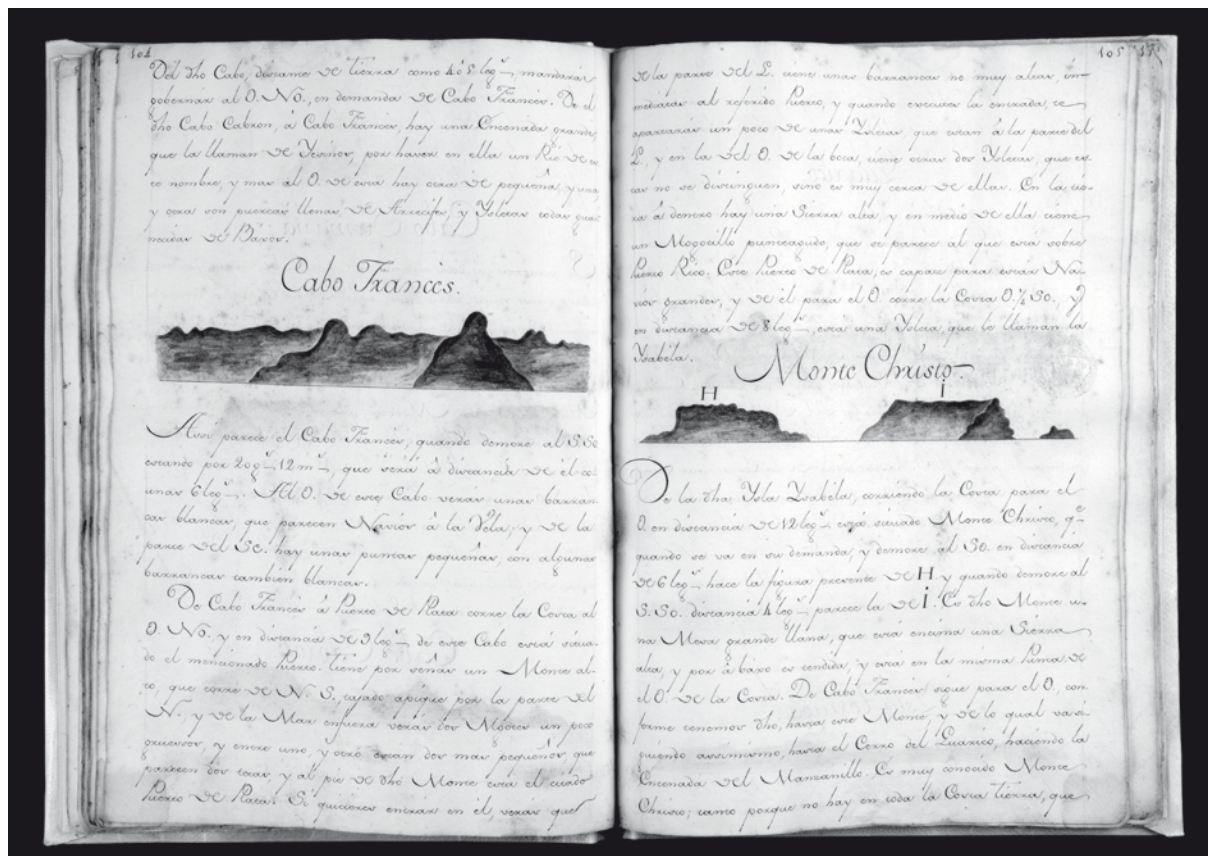 104
Del dho Cabo, distante de tierra como 4 ó 5 leg.s, mandarás
gobernar al O. NO., en demanda de Cabo Francés. De el
dho Cabo Cabron, á Cabo Francés, hay una Encenada grande,
que la llaman de Yesinos, por haver en ella un Rio de es
te nombre, y mas al O. de esta hay otra de pequeña, y una
y otra son puercas llenas de Arrecifes, y Ysletas todas gua
necidas de Baxos.
Cabo Francés.
Assi parece el Cabo Francés, quando demore al SSO
estando por 20 g.s 12 m.s, que verá á distancia de él co
unas 6 leg.s. Al O. de este Cabo verás unas barran
cas blancas, que parecen Navios á la Vela, y de la
parte del SE. hay unas puntas pequeñas, con algunas
barrancas tambien blancas.
De Cabo Francés á Puerto de Plata corre la Costa al
O. NO. y en distancia de 9 leg.s de este Cabo está situa
do el mencionado Puerto. tiene por señas un Monte al
to, que corre de N. S. tajado apique por la parte del
N., y de la Mar enfuera verás dos Mogotes un poco
gruesos, y entre uno, y otro estan dos mas pequeños que
parecen dos tetas, y al pie de dho Monte está el citado
Puerto de Plata. Si quisieres entrar en él, verás que
105
de la parte del L. tiene unas barrancas no muy altas, in-
mediatas al referido Puerto, y quando executes la entrada, te
apartarás un poco de unas Ysletas, que estan á la parte del
L. y en la del O. de la boca, tiene otras dos Ysletas, que es-
tas no se distinguen, sino es muy cerca de ellas. En la tie-
rra á dentro hay una Sierra alta, y en medio de ella tiene
un Mogotillo punteagudo, que se parece al que está sobre
Puerto Rico. Este Puerto de Plata, es capaz para estár Na-
vios grandes, y de él para el O. corre la Costa O. ¼ SO. y
en distancia de 8 leg.s, está una Ysleta, que le llaman la
Ysabéla.
Monte Christo
H
I
De la dha Ysla Ysabéla, corriendo la Costa para el
O. en distancia de 12 leg.s está situado Monte Christo, q.e
quando se va en su demanda, y demore al SO. en distancia
de 6 leg.s hace la figura presente de H y quando demore al
S. SO. distancia 4 leg.s parece la de I. Es dho Monte u-
na Mesa grande llana, que está encima una Sierra
alta, y por á baxo es tendida, y está en la misma Punta de
el O. de la Costa. De Cabo Francés sigue para el O., con
forme tenemos dho, hasta este Monte, y de lo qual va si
guiendo assimismo, hasta el Cerro del Guarico, haciendo la
Encenada del Manzanillo. Es muy conocido Monte
Christo; tanto porque no hay en toda la Costa tierra, que